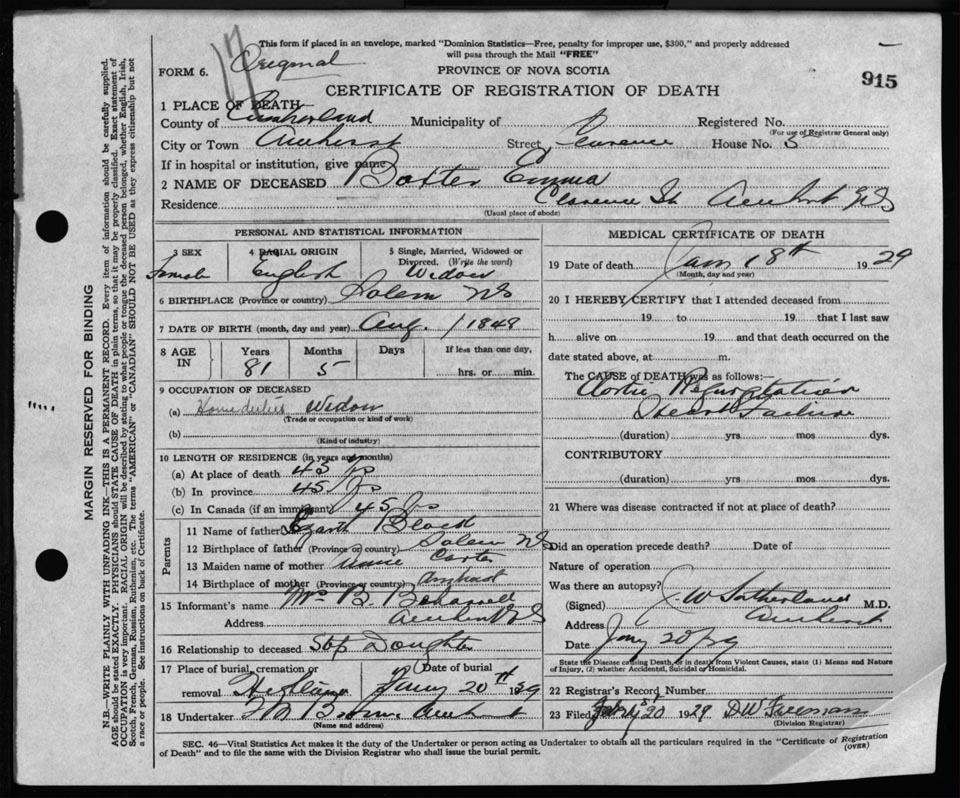 This form if placed in an envelope, marked "Dominion Statistics—Free, penalty for improper use, $300," and properly addressed
will pass through the Mail "FREE"
Original
FORM 6.
PROVINCE OF NOVA SCOTIA
915
CERTIFICATE OF REGISTRATION OF DEATH
1 PLACE OF DEATH
County of Cumberland Municipality of Registered No.
(For use of Registrar General only)
City or Town Amherst Street, Clarence House No. 3
If in hospital or institution, give name
2 NAME OF DECEASED Baxter Emma
Residence Clarence St Amherst NS
(Usual place of abode)
PERSONAL AND STATISTICAL INFORMATION
3 SEX 4 RACIAL ORIGIN 5 Single, Married, Widowed or Divorced. (Write the word)
Female English Widow
6 BIRTHPLACE (Province or country) Salem NS
7 DATE OF BIRTH (month, day and year) Aug. 1848
8 AGE IN Years Months Days If less than one day,
81 5 hrs. or min.
9 OCCUPATION OF DECEASED
(a) Home duties Widow
(Trade or occupation or kind of work)
(b)
(Kind of industry)
10 LENGTH OF RESIDENCE (in years and months)
(a) At place of death 45 yrs
(b) In province 45 yrs
(c) In Canada (if an immigrant) 45 yrs
Parents
11 Name of father
12 Birthplace of father (Province or country) Salem NS
13 Maiden name of mother Annie Carter
14 Birthplace of mother (Province or country) Amherst
15 Informant's name Mrs B.
Address Amherst NS
16 Relationship to deceased Step Daughter
17 Place of burial, cremation or removal Date of burial
Highland Jany 20th 1929
18 Undertaker Amherst
(Name and address)
MEDICAL CERTIFICATE OF DEATH
19 Date of death Jan 18th 1929
(Month, day and year)
20 I HEREBY CERTIFY that I attended deceased from
19 to 19 that I last saw
h alive on 19 and that death occurred on the
date stated above, at m.
The CAUSE OF DEATH was as follows:—
Aortic Regurgitation
Heart Failure
(duration) yrs mos dys.
CONTRIBUTORY
(duration) yrs. mos dys.
21 Where was disease contracted if not at place of death?
Did an operation precede death? Date of
Nature of operation
Was there an autopsy?
(Signed) J. W Sutherland M.D.
Address Amherst
Date Jany 20/29
State the Disease causing Death, or in death from Violent Causes, state (1) Means and Nature
of Injury, (2) whether Accidental, Suicidal or Homicidal.
22 Registrar's Record Number
23 Filed 20 1929 D W Freeman
(Division Registrar)
SEC. 46—Vital Statistics Act makes it the duty of the Undertaker or person acting as Undertaker to obtain all the particulars required in the "Certificate of Registration
of Death" and to file the same with the Division Registrar who shall issue the burial permit.
(OVER)
MARGIN RESERVED FOR BINDING
N.B.—WRITE PLAINLY WITH UNFADING INK—THIS IS A PERMANENT RECORD. Every item of information should be carefully supplied.
AGE should be stated EXACTLY. PHYSICIANS should STATE CAUSE OF DEATH in plain terms, so that it may be properly classified. Exact statement of
OCCUPATION is very important. RACIAL ORIGIN will be described by stating to what people or tongue the deceased person belonged, whether English, Irish,
Scotch, French, German, Russian, Ruthenian, etc. The terms "AMERICAN" or "CANADIAN" SHOULD NOT BE USED as they express citizenship but not
a race or people. See instructions on back of Certificate.